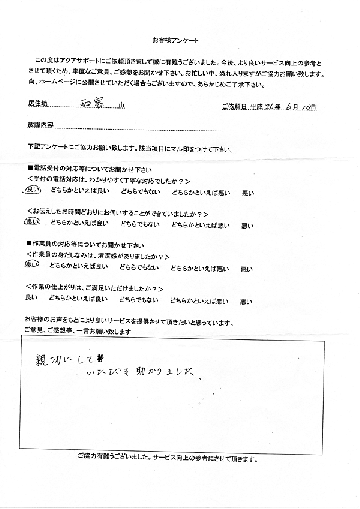 お客様アンケート
この度はアクアサポートにご依頼頂きまして誠に有難うございました。今後、より良いサービス向上の参考と
させて頂くため、率直なご意見、ご感想をお聞かせ下さい。お忙しい中、恐れ入りますがご協力お願い致します。
尚、ホームページに公開させていただく場合もございますので、あらかじめご了承下さい。
居住地 山
ご依頼日 平成 年 6月 10日
依頼内容
下記アンケートにご協力お願い致します。該当項目に丸印をつけて下さい。
■電話受付の対応等についてお聞かせ下さい
<受付の電話対応は、わかりやすく丁寧な対応でしたか?>
良い どちらかといえば良い どちらでもない どちらかといえば悪い 悪い
<お伝えした時間どおりにお伺いすることができていましたか?>
良い どちらかといえば良い どちらでもない どちらかといえば悪い 悪い
■作業員の対応等についてお聞かせ下さい
<作業員の身だしなみは、清潔感がありましたか?>
良い どちらかといえば良い どちらでもない どちらかといえば悪い 悪い
<作業の仕上がりは、ご満足いただけましたか?>
良い どちらかといえば良い どちらでもない どちらかといえば悪い 悪い
お客様のお声をもとにより良いサービスを提供させて頂きたいと思っています。
ご意見、ご感想等、一言お願い致します
親切にして
いただき助かりました。
ご協力有難うございました。サービス向上の参考にさせて頂きます。